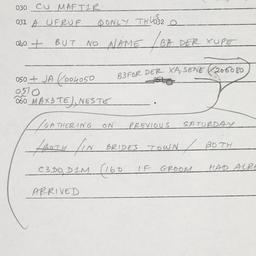 030 CU MAFTIR
031 A UFRUF ØONLY TH
040 + BUT NO NAME / BA DER XUPE
050 + JA (/004050 B3FOR DER XA,SENE (/206080)
0510
060 MAX3TE), NESTE
/GATHERING ON PREVIOUS SATURDAY
/BOTH /IN BRIDES TOWN / BOTH
C3DO,D1M (160 IF GROOM HAD ALR
ARRIVED